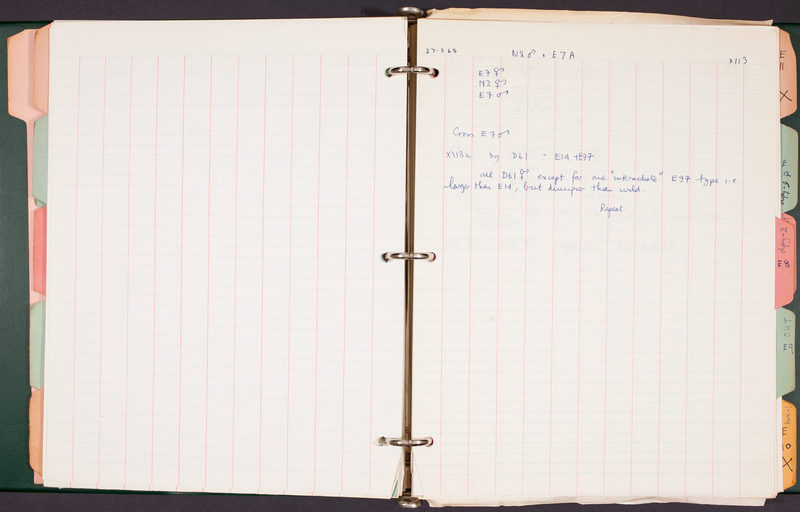 27.5.68 N2♂ x E7A X113
E7 ⚥
N2 ⚥
E7 ♂
Cross E7♂
X113a by D61 - E14 + E97
all D61 except for one "intermediate" E97 type i.e.
larger than E14, but dumpier than wild.
Repeat.
E
11
X
dpy-2
E8
OUT
E9
E
10
X